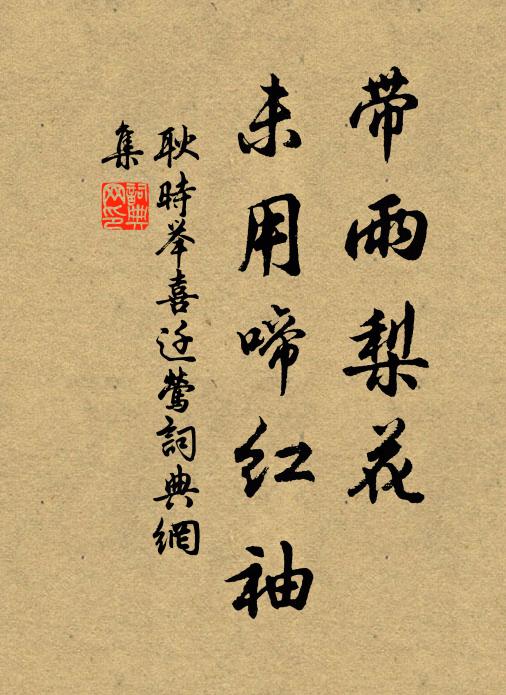 带雨梨花
未用啼红袖
耿時举喜迁鶯詞典網
集
詞典网印